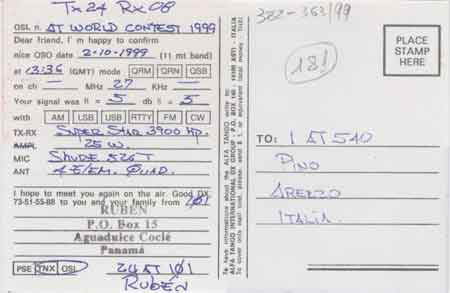 Tx 24 Rx 08
QSL n. AT WORLD CONTEST 1999
Dear friend, I'm happy to confirm
nice QSO date 2-10-1999 (11 mt band)
at 13:36 (GMT) mode QRM QRN QSB
on ch — MHz 27 KHz —
Your signal was R = 5 db S = 5
with AM LSB USB RTTY FM CW
TX-RX SUPER STAR 3900 HP.
AMPL 25 W.
MIC SHURE 526T
ANT 4 E/EM. QUAD.
I hope to meet you again on the air. Good DX
73-51-55-88 to you and your family from 101
RUBÉN
P.O. Box 15
Aguadulce Coclé
Panamá
PSE TNX QSL 24 AT 101
RUBÉN
To have informations about the ALFA TANGO write to:
ALFA TANGO INTERNATIONAL DX GROUP - P.O. BOX 140 - 14100 ASTI - ITALIA
To cover only mail cost, please, send $ 1. or equivalent total money. Tnx!
382-363/99
181
PLACE
STAMP
HERE
TO: 1 AT 540
PINO
AREZZO
ITALIA.